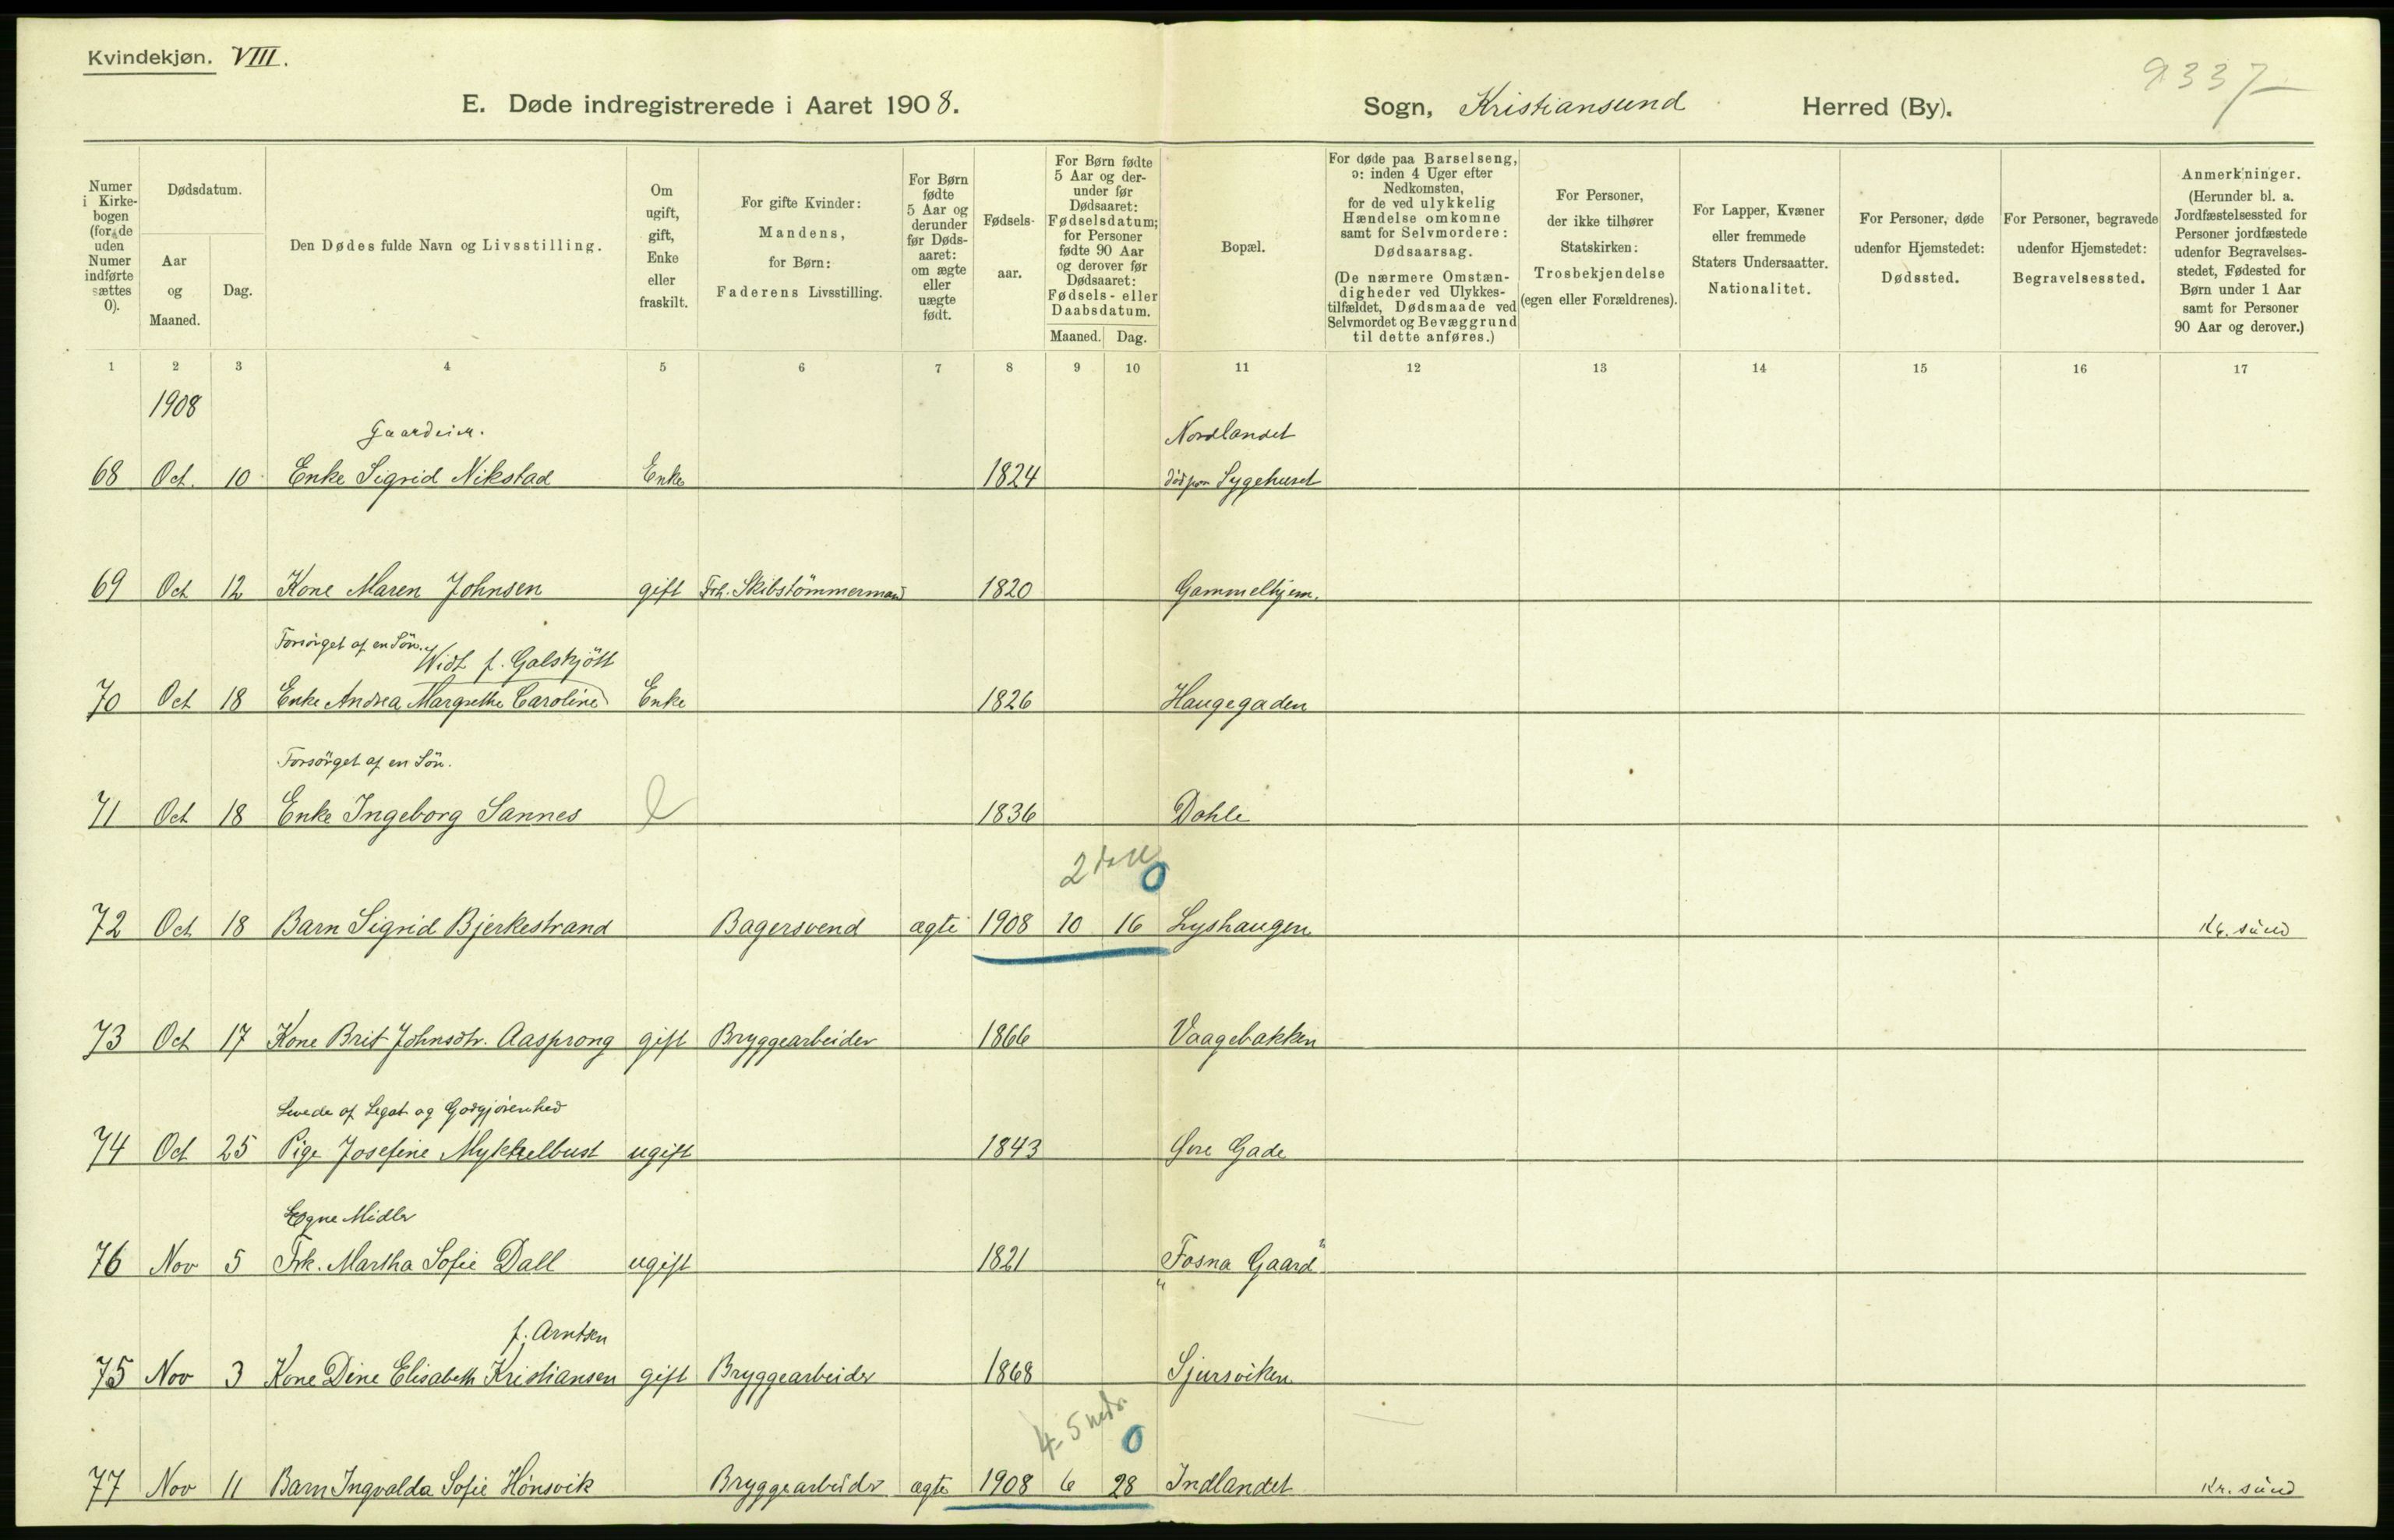 Kvindekjøn. VIII.
9337
E. Døde indregistrerede i Aaret 1908.
Sogn, Kristiansund Herred (By).
Numer i Kirkebogen (for de uden Numer indførte sættes 0).
Dødsdatum.
Aar og Maaned.
Dag.
Den Dødes fulde Navn og Livsstilling.
Om ugift, gift, Enke eller fraskilt.
For gifte Kvinder: Mandens, for Børn: Faderens Livsstilling.
For Børn fødte 5 Aar og derunder før Dødsaaret: om ægte eller uægte født.
Fødselsaar.
For Børn fødte 5 Aar og derunder før Dødsaaret: Fødselsdatum; for Personer fødte 90 Aar og derover før Dødsaaret: Fødsels- eller Daabsdatum.
Maaned. Dag.
Bopæl.
For døde paa Barselseng, ɔ: inden 4 Uger efter Nedkomsten, for de ved ulykkelig Hændelse omkomne samt for Selvmordere: Dødsaarsag.
(De nærmere Omstændigheder ved Ulykkestilfældet, Dødsmaade ved Selvmordet og Bevæggrund til dette anføres.)
For Personer, der ikke tilhører Statskirken: Trosbekjendelse (egen eller Forældrenes).
For Lapper, Kvæner eller fremmede Staters Undersaatter. Nationalitet.
For Personer, døde udenfor Hjemstedet: Dødssted.
For Personer, begravede udenfor Hjemstedet: Begravelsessted.
Anmerkninger. (Herunder bl. a. Jordfæstelsessted for Personer jordfæstede udenfor Begravelsesstedet, Fødested for Børn under 1 Aar samt for Personer 90 Aar og derover.)
1 2 3 4 5 6 7 8 9 10 11 12 13 14 15 16 17
1908
Nordlandet
68 Oct. 10 Enke Sigrid Nikstad Enke 1824 død paa Sygehuset
69 Oct 12 Kone Maren Johnsen gift Fhv. Skibstömmermand 1820 Gammelhjem.
Forsörget af en Sön. Widt f. Galskjött
70 Oct 18 Enke Andrea Margrethe Caroline Enke 1826 Haugegaden
Forsörget af en Sön.
71 Oct 18 Enke Ingeborg Sannes 1836 Dahle
0
72 Oct 18 Barn Sigrid Bjerkestrand Bagersvend ægte 1908 10 16 Lyshaugen Kr. sund
73 Oct 17 Kone Brit Johnsdtr. Aasprong gift Bryggearbeider 1866 Vaagebakken
Levede af Legat og Godgjörenhed
74 Oct 25 Pige Josefine Myklebust ugift 1843 Øvre Gade
Egne Midler
76 Nov 5 Frk. Martha Sofie Dall ugift 1821 "Fosna Gaard"
f. Arntsen
75 Nov 3 Kone Dine Elisabeth Kristiansen gift Bryggearbeider 1868 Sjursviken
4-5 mdr. 0
77 Nov 11 Barn Ingvalda Sofie Hönsvik Bryggearbeider ægte 1908 6 28 Indlandet Kr. sund